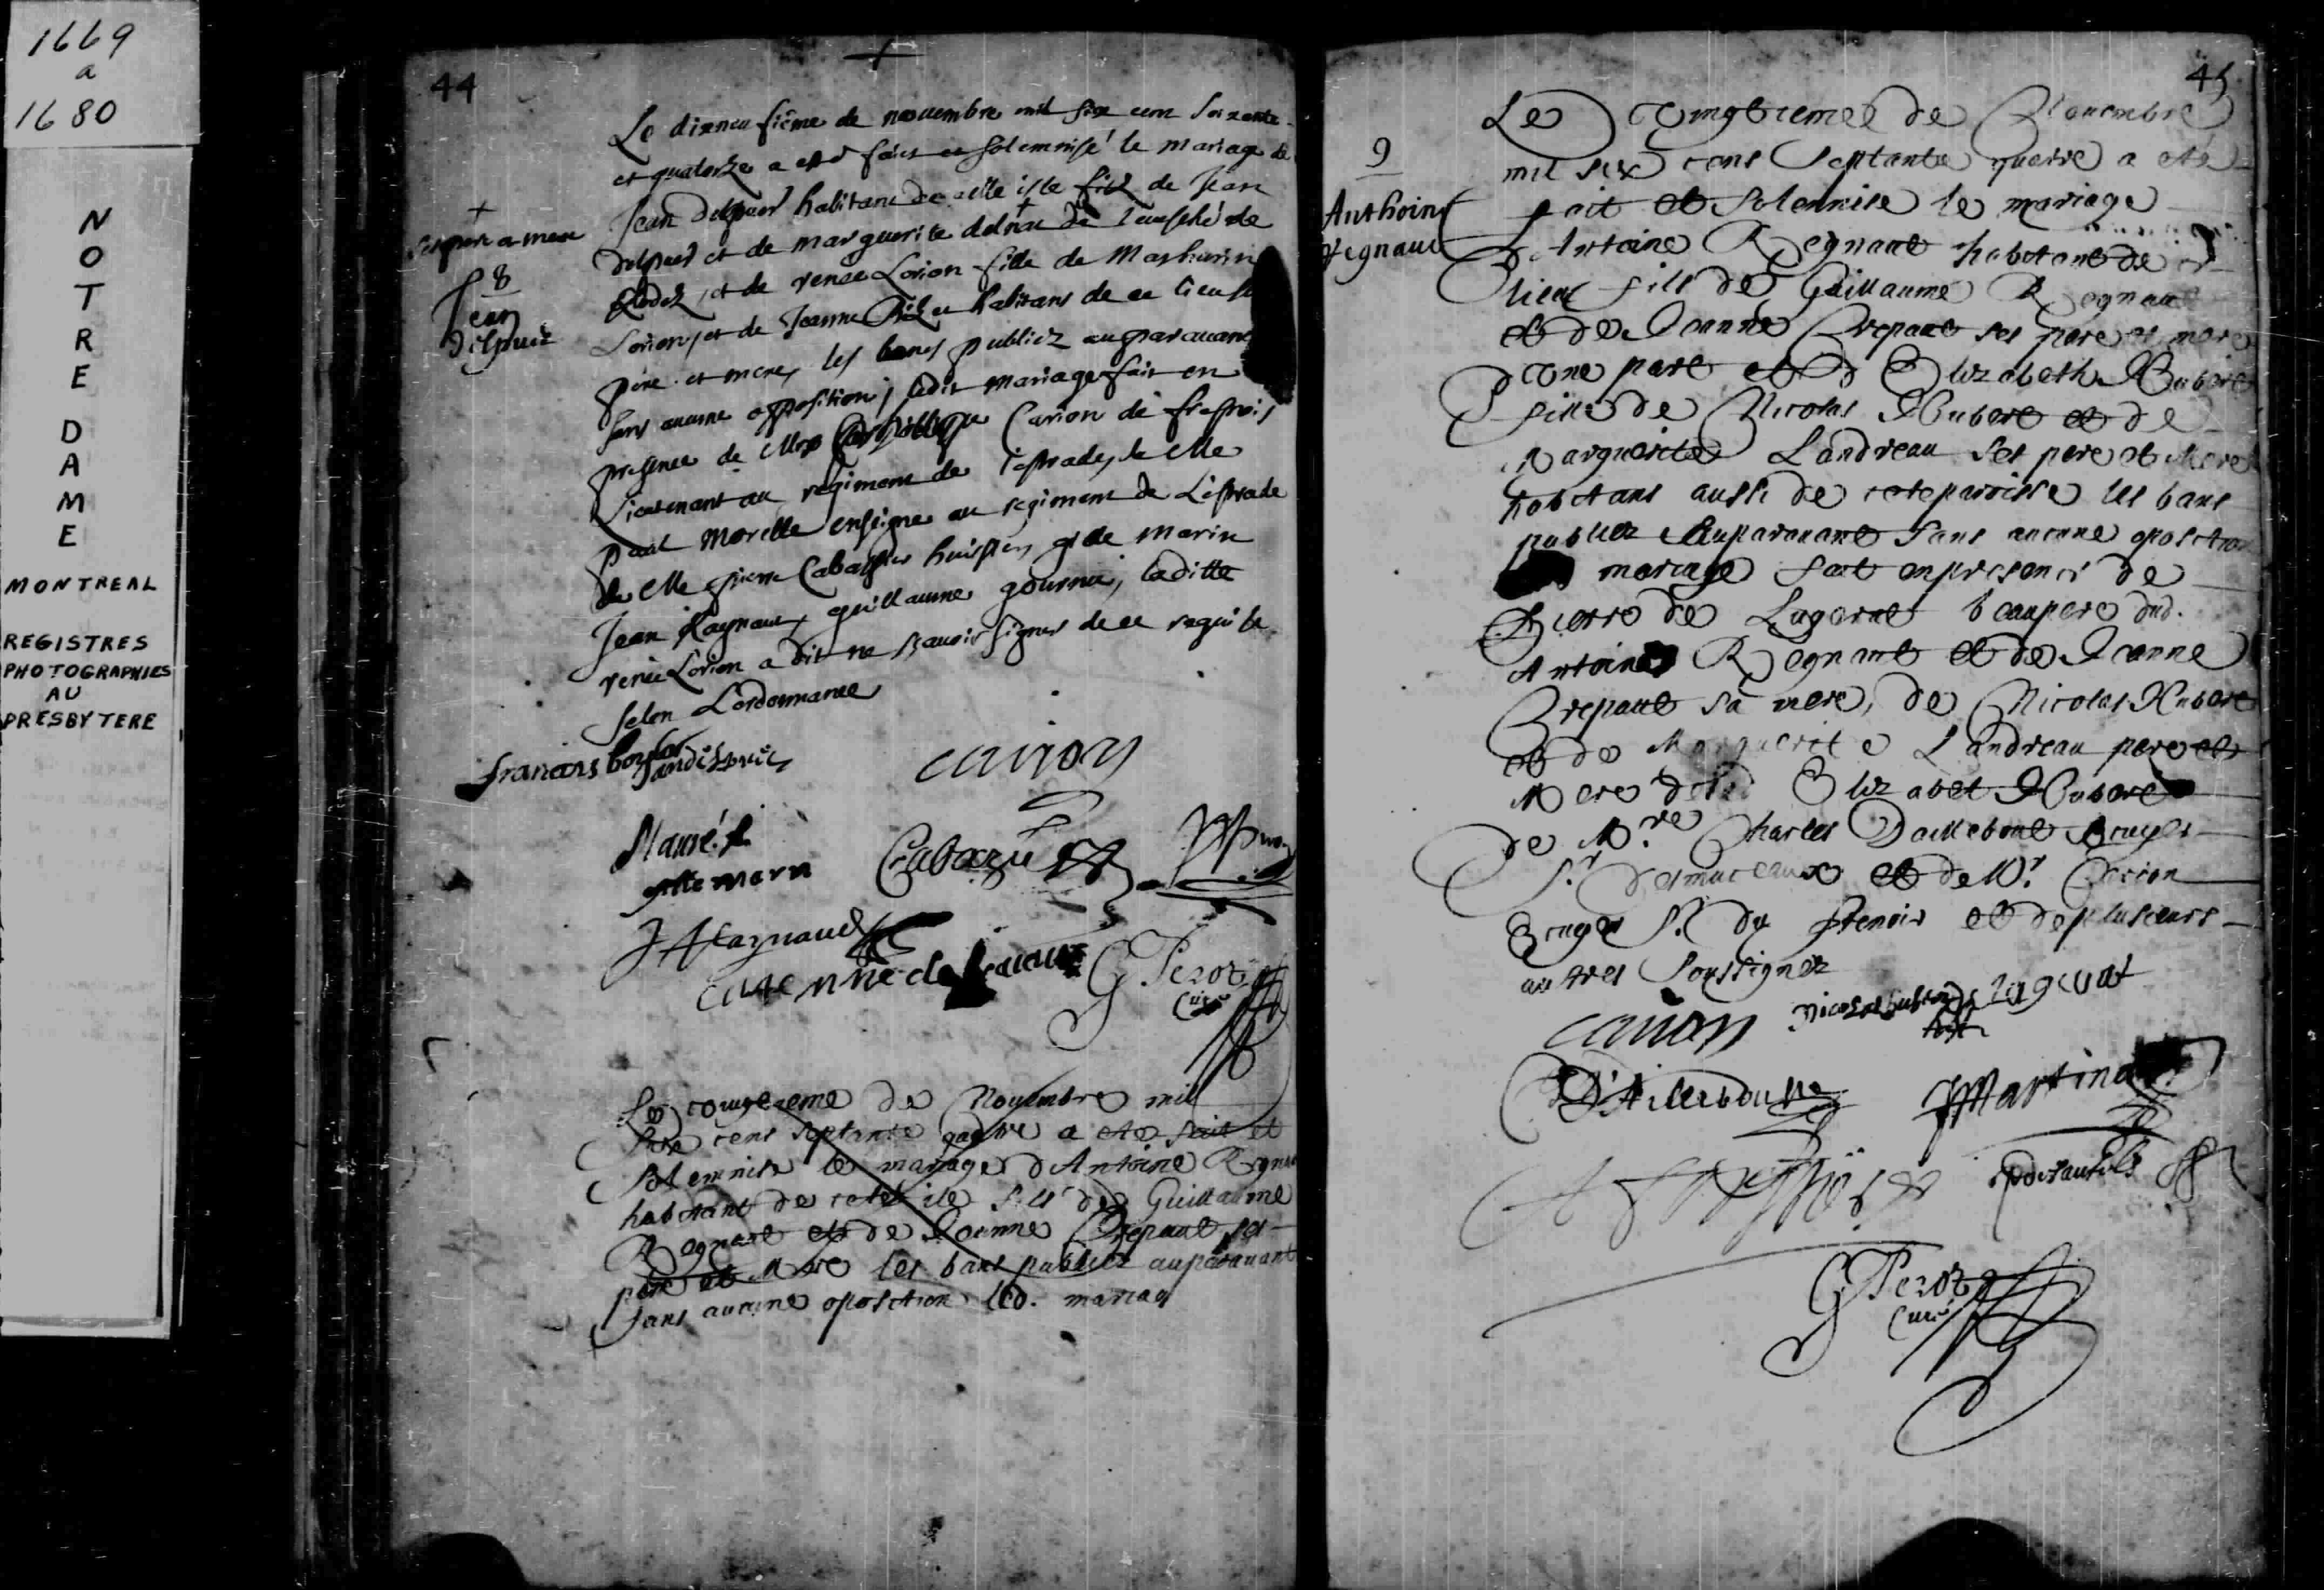 1669
a
1680
NOTRE DAME
MONTREAL
REGISTRES
PHOTOGRAPHIES
AU
PRESBYTERE
44
Le dixneufiême de nouembre mil six cent soixante
et quatorze a esté faict et solemnisé le mariage de
Jean delpues habitant de cette isle fils de Jean
delpues et de marguerite de l'euesché de
Rodez, et de renée Lorion fille de Mathurin
Lorion, et de Jeanne habitans de ce lieu
père et mere, les bancs publiez auparauant
sans aucune opposition, ledit mariage fait en
presence de Carion de fresnois
Lieutenant au regiment de l'estrade, de Me
paul Morelle enseigne au regiment de L'estrade
de Me pierre Cabazier huissier, gille marin
Jean Raynaud, guillaume gournai, laditte
renée Lorion a dit ne scauoir signer de ce requise
selon L'ordonnance
+
ses pere a mere
8
Jean
delpuez
francois
carion
gille marin
Cabazié
JRaynaud
G Perot
Curé
Le vingtieme de Nouembre mil
six cens septante quatre a ete fait et
solemnise le mariage d Antoine Regna
habitant de cete ile fils de Guillaume
Regnaut et de Jeanne Crepaut ses
pere et Mere les bans publiez auparauant
sans aucune oposition led. mariag
45
9
Anthoine
regnaut
Le vingtieme de Nouembre
mil six cens septante quatre a ete
fait et solemnise le mariage
d Antoine Regnaut habitant de ce
lieu fils de Guillaume Regnau
et de Jeanne Crepaut ses pere et mere
d une part et d Elizabeth Hubert
fille de Nicolas Hubert et de
Marguerite Landreau ses pere et Mere
habitans aussi de cete paroisse les bans
publiez Auparauant sans aucune oposition
mariage fait en presence de
Pierre de Lugerat beaupere dud.
Antoine Regnaut et de Jeanne
Crepaut sa mere, de Nicolas Hubert
et de Marguerite Landreau pere et
Mere de Elizabet Hubert
de M.re Charles Daillebout Ecuyer
S.r desmuceaux et de M.r Carion
Ecuyer S.r du frenoir et de plusieurs
autres soussignez
carion
nicolas hubert
lugerat
D'Ailleboust
JMartinet
G Perot
Curé